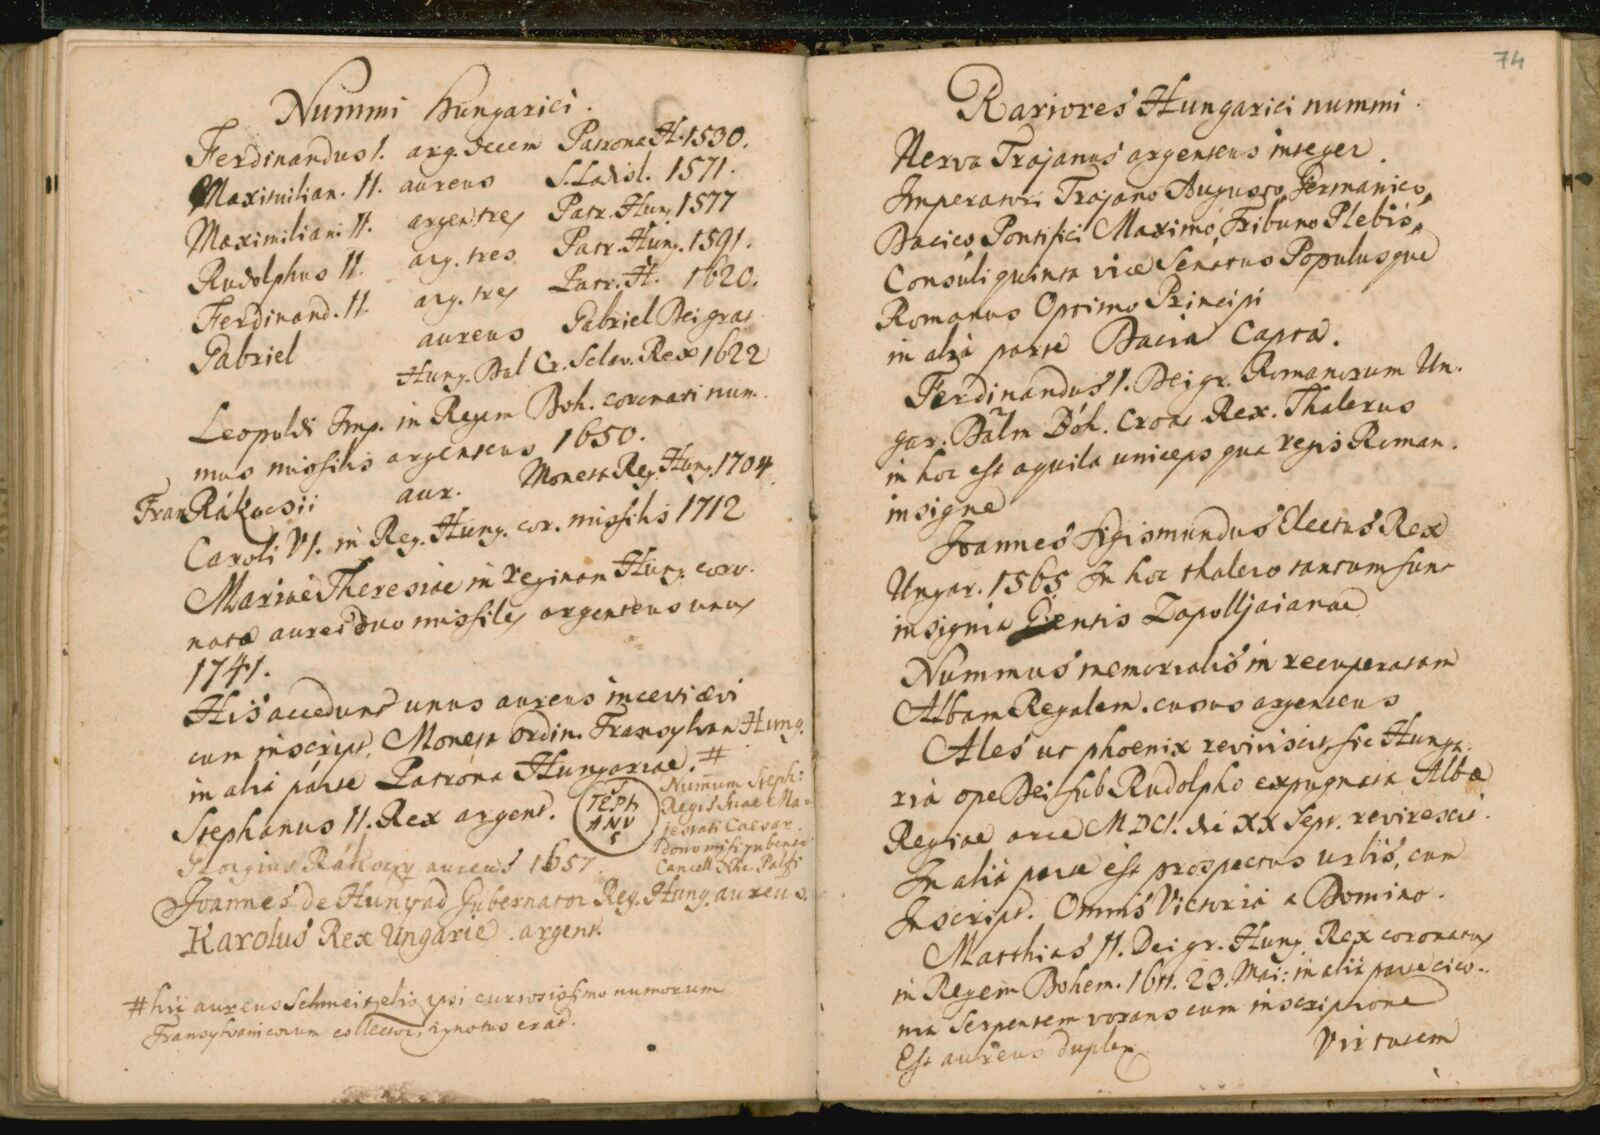 Nummi Hungarici.
Ferdinandus I. arg. decem Patrona H. 1530.
Maximilian. II. aureus S. Ladisl. 1571.
Maximiliani II. argen. tres Patr. Hung. 1577
Rudolphus II. arg. tres Patr. Hung. 1591.
Ferdinand. II. arg. tres Patr. H. 1620.
Gabriel aureus Gabriel Dei gras
Hung. Dal Cr. Sclav. Rex 1622
Leopoldi Imp. in Regem Boh. coronati num
mus missilis argenteus 1650.
Fran Rákocsii aur. Moneta Reg. Hung. 1704.
Caroli VI. in Reg. Hung. cor. missilis 1712
Mariae Theresiae in reginam Hung. coro-
natæ aurei duo missiles argenteus unus
1741.
His accedunt unus aureus incerti ævi
cum inscript. Moneta ordin. Transylvan Hung.
in aliâ parte Patrona Hungariae. #
Stephanus II. Rex argent.
STEPH
ANV
S
Numum Steph:
Regis suae Ma=
jestati Caesar.
dono misi jubente
Cancell. Palfi
Georgius Rákoczy aureus 1657.
Joannes de Hunyad Gubernator Reg. Hung. aureus.
Karolus Rex Ungarie argent.
# hic aureus Schmeitzelio ipsi curiosissimo numorum
Transylvanicorum collectori ignotus erat.
74
Rariores Hungarici nummi.
Nerva Trajanus argenteus integer.
Imperatori Trajano Augusto, Germanico,
Dacico, Pontifici Maximo, Tribuno Plebis,
Consuli quinta vice Senatus Populusque
Romanus Optimo Principi
in aliâ parte Dacia Capta.
Ferdinandus I. Dei gr. Romanorum Un-
gar. Dalm Boh. Croac Rex. Thalerus
in hoc est aquila uniceps qua regis Roman.
insigne
Joannes Sigismundus Electus Rex
Ungar. 1565. In hoc thalero tantum sunt
insignia Gentis Zapolljaianae
Nummus memorialis in recuperatam
Albam Regalem. cusus argenteus
Ales ut phoenix reviviscit, sic Hunga-
ria ope Dei sub Rudolpho expugnata Albæ
Regiae arce MDCI. die XX Sept. revirescit.
In aliâ parte est prospectus urbis, cum
Inscript. Omnis Victoria a Domino.
Matthias II. Dei gr. Hung. Rex coronatus
in Regem Bohem. 1611. 23. Maii: in aliâ parte cico-
nia serpentem vorans cum inscriptione
Est aureus duplex Virtutem